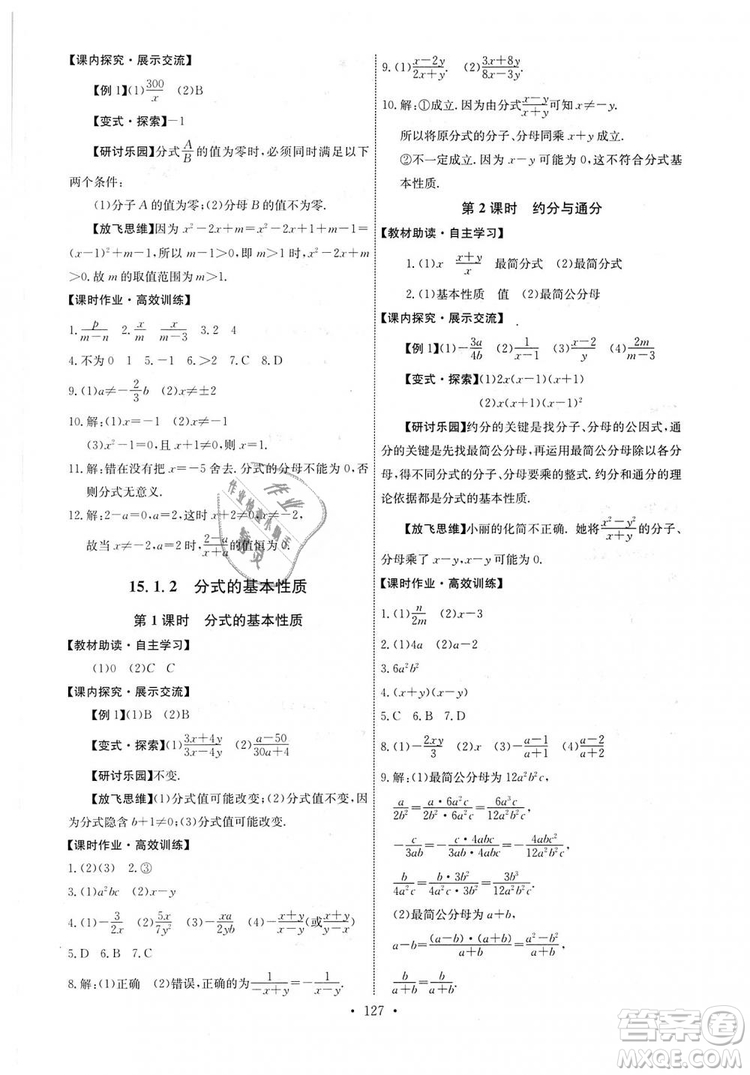 【课内探究·展示交流】
【例 1】(1)300/x  (2)B
【变式·探索】-1
【研讨乐园】分式A/B的值为零时,必须同时满足以下
两个条件:
(1)分子 A 的值为零;(2)分母 B 的值不为零.
【放飞思维】因为 x²-2x+m=x²-2x+1+m-1=
(x-1)²+m-1,所以 m-1>0 时,x²-2x+m 不可能等于
0.故 m 的取值范围为 m>1.
【课时作业·高效训练】
1. p/(m-n)  2. x/m  x/(m-3)  3. x/15  2  4
4.不为 0  5.1  6.>2  7.C  8.C
9.(1)a≠-2/3 b  (2)x≠±2
10.解:(1)x=-1  (2)x=0
(3)x²=1,且 x+1≠0,所以 x=1.
11.解:错在没有把 x=-5 舍去.分式的分母不能为 0,否
则分式无意义.
12.解:2-a=0,a=2,这时 x+2≠0,x≠-2,
故当 x≠-a,a=2 时,(2-a)/(x+a)的值恒为 0.
15.1.2  分式的基本性质
第 1 课时  分式的基本性质
【教材助读·自主学习】
(1)0  (2)C  C
【课内探究·展示交流】
【例 1】(1)B  (2)B
【变式·探索】(1)(3x+4y)/(3x-4y)  (2)(a-50)/(30a+4)
【研讨乐园】不变.
【放飞思维】(1)分式值可能改变;(2)分式值不变,因
为分式隐含 b+1≠0;(3)分式值可能改变.
【课时作业·高效训练】
1.(2)(3)  2.③
3.(1)a²bc  (2)x-y
4.(1)-3/2x  (2)5x/7y²  (3)-xa/2yb  (4)-(x+y)/(x-y)(或(x+y)/(y-x))
5.D  6.D  7.C
8.解:(1)正确  (2)错误,正确的是1/(-x+y)=-1/(x-y)
9.(1)(x-2y)/(2x+y).  (2)(3x+8y)/(8x-3y).
10.解:①成立.因为由分式(x-y)/(x+y)可知 x≠-y.
所以将原分式的分子、分母同乘 x+y,成立.
②不一定成立.因为 x-y 可能为 0,这不符合分式基
本性质.
第 2 课时  约分与通分
【教材助读·自主学习】
1.(1)x  (x+y)/x  最简分式  (2)最简分式
2.(1)基本性质  值  (2)最简公分母
【课内探究·展示交流】
【例 1】(1)-3a/4b  (2)1/(x-1)  (3)(x-2)/x  (4)2m/(m-4)
【变式·探索】(1)x(x-1)(x+1)
(2)x(x+1)(x-1)²
【研讨乐园】约分的关键是找分子、分母的公因式,通
分的关键是先找最简公分母,再用最简公分母除以各分
母,得到不同的分式的分子、分母要乘的整式.约分和通分的理
论依据都是分式的基本性质.
【放飞思维】小丽的化简不正确.她将(x²-y²)/(x+y)的分子、
分母同乘(x-y),x-y 可能为 0.
【课时作业·高效训练】
1.(1)n/2m  (2)x-3
2.(1)4a  (2)a-2
3.6a²b²
4.(x+y)(x-y)
5.C  6.B  7.D
8.(1)-2xy/3  (2)(x-y)/(x+y)  (3)-(a-1)/(a+1)  (4)a/(a-2)
9.解:(1)最简公分母为 12a²b²c,
a/2b²=(a·6a²c)/(2b²·6a²c)=6a³c/12a²b²c,
-c/3ab²=-(c·4ac)/(3ab²·4abc)=-4abc²/12a²b²c,
b/4a²c=(b·3b²)/(4a²c·3b²)=3b³/12a²b²c.
(2)最简公分母为 a+b,
a-b=((a-b)·(a+b))/(a+b)=(a²-b²)/(a+b),
b/(a+b)=b/(a+b).
127
答案圈
MXQE.COM